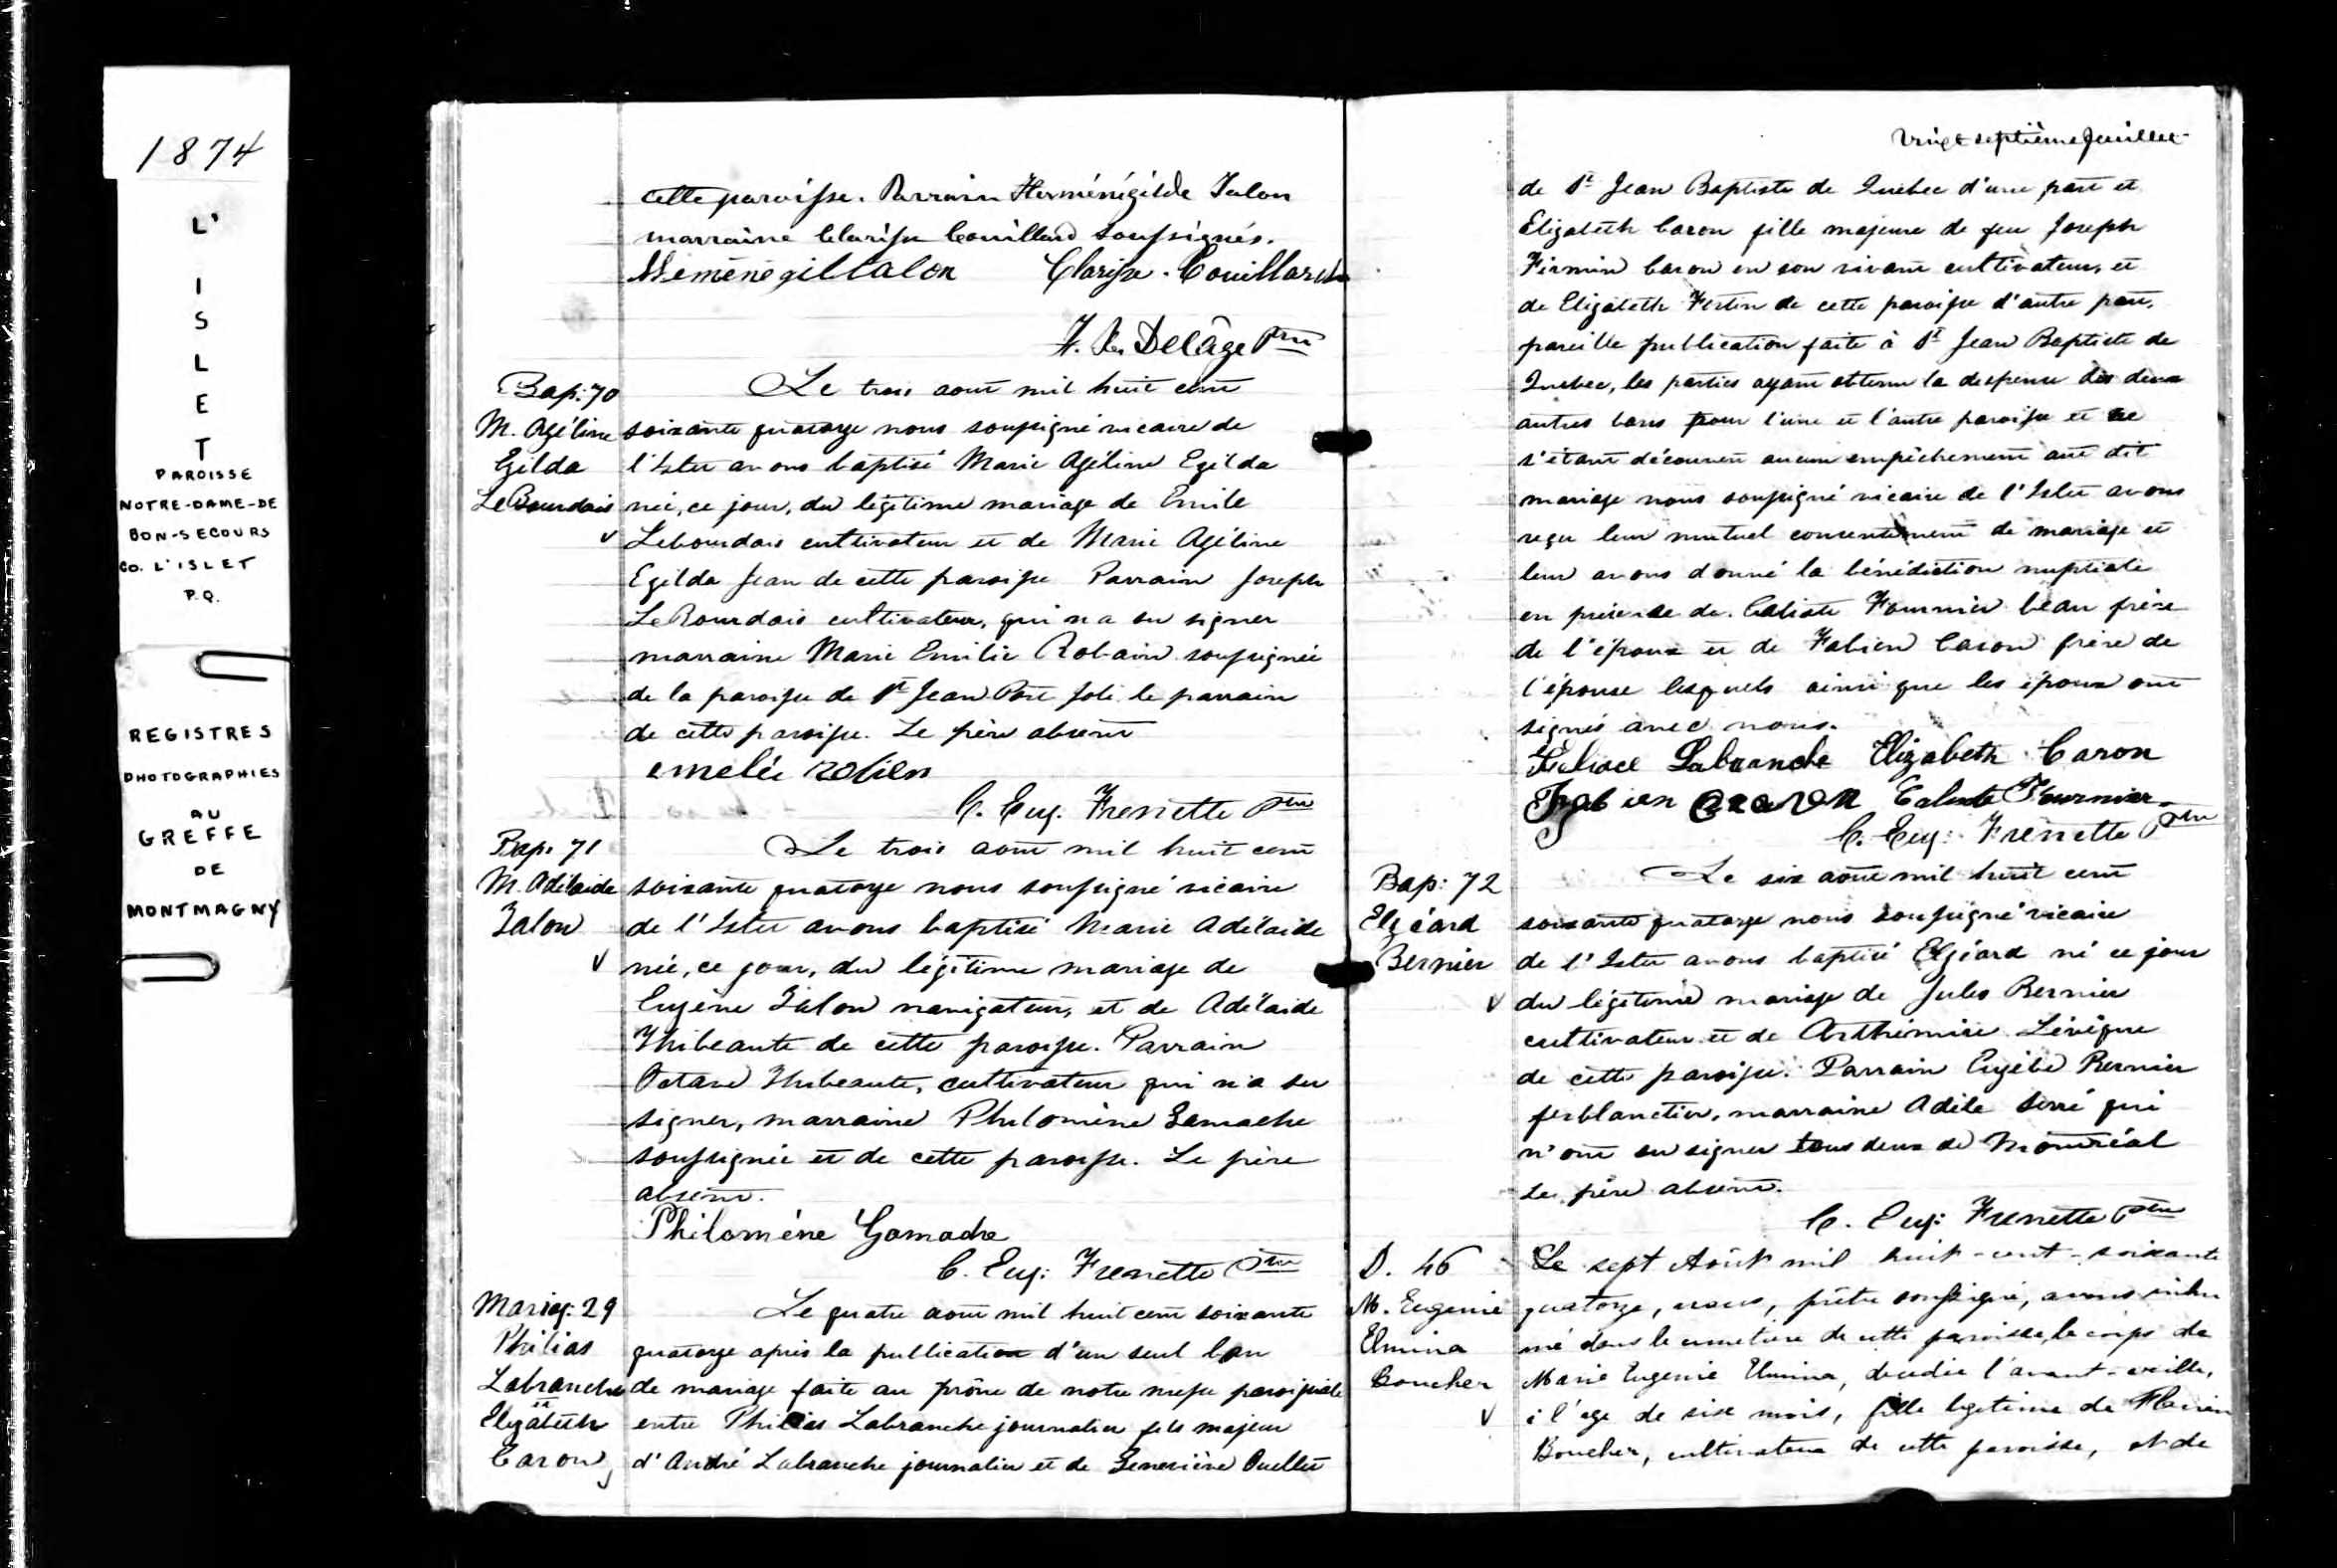 1874
L'
I
S
L
E
T
PAROISSE
NOTRE-DAME-DE
BON-SECOURS
CO. L'ISLET
P.Q.
REGISTRES
PHOTOGRAPHIES
AU
GREFFE
DE
MONTMAGNY
cette paroisse. Parrain Herménégilde Talon
marraine Clarisse Couillard soussignés.
Clarisse Couillard
Delâge Ptre
Bap: 70
M. Agéline
Egilda
LeBourdais
Le trois aout mil huit cent
soixante quatorze nous soussigné vicaire de
l'Islet avons baptisé Marie Agéline Egilda
née, ce jour, du légitime mariage de Emile
Lebourdais cultivateur et de Marie Agéline
Egilda Jean de cette paroisse Parrain Joseph
LeBourdais cultivateur, qui n'a su signer
marraine Marie Emilie Robain soussignée
de la paroisse de St Jean Port Joli le parrain
de cette paroisse. Le père absent
emelie robien
C. Eug. Frenette Ptre
Bap: 71
M. Adélaide
Talon
Le trois aout mil huit cent
soixante quatorze nous soussigné vicaire
de l'Islet avons baptisé Marie Adélaide
née, ce jour, du légitime mariage de
Eugène Talon navigateur, et de Adélaide
Thibeaute de cette paroisse. Parrain
Octave Thibeaute, cultivateur qui n'a su
signer, marraine Philomène Gamache
soussignée et de cette paroisse. Le père
absent.
Philomène Gamache
C. Eug: Frenette Ptre
Mariag: 29
Philias
Labranche
et
Elizabeth
Caron
Le quatre aout mil huit cent soixante
quatorze après la publication d'un seul ban
de mariage faite au prône de notre messe paroissiale
entre Philias Labranche journalier fils majeur
d'André Labranche journalier et de Geneviève Ouellet
Vingt septième feuillet
de St Jean Baptiste de Quebec d'une part et
Elizabeth Caron fille majeure de feu Joseph
Firmin Caron en son vivant cultivateur, et
de Elizabeth Fortin de cette paroisse d'autre part,
pareille publication faite à St Jean Baptiste de
Quebec, les parties ayant obtenu la dispense des deux
autres bans pour l'une et l'autre paroisse et ne
s'étant découvert aucun empêchement aut dit
mariage nous soussigné vicaire de l'Islet avons
reçu leur mutuel consentement de mariage et
leur avons donné la bénédiction nuptiale
en présence de Caliste Fournier beau frère
de l'époux et de Fabien Caron frère de
l'épouse lesquels ainsi que les époux ont
signés avec nous.
Labranche Elizabeth Caron
Fabien Caron Caliste Fournier
C. Eug: Frenette Ptre
Bap: 72
Elzéard
Bernier
Le six aout mil huit cent
soixante quatorze nous soussigné vicaire
de l'Islet avons baptisé Elzéard né ce jour
du légitime mariage de Jules Bernier
cultivateur et de Arthémise Lévêque
de cette paroisse. Parrain Eusèbe Bernier
ferblantier, marraine Adèle Serré qui
n'ont su signer tous deux de Montréal
Le père absent.
C. Eug: Frenette Ptre
D. 46
M. Eugenie
Elmina
Boucher
Le sept Août mil huit-cent-soixante
quatorze, nous, prêtre soussigné, avons inhu
mé dans le cimetière de cette paroisse, le corps de
Marie Eugenie Elmina, décédée l'avant-veille,
à l'age de six mois, fille légitime de
Boucher, cultivateur de cette paroisse, et de